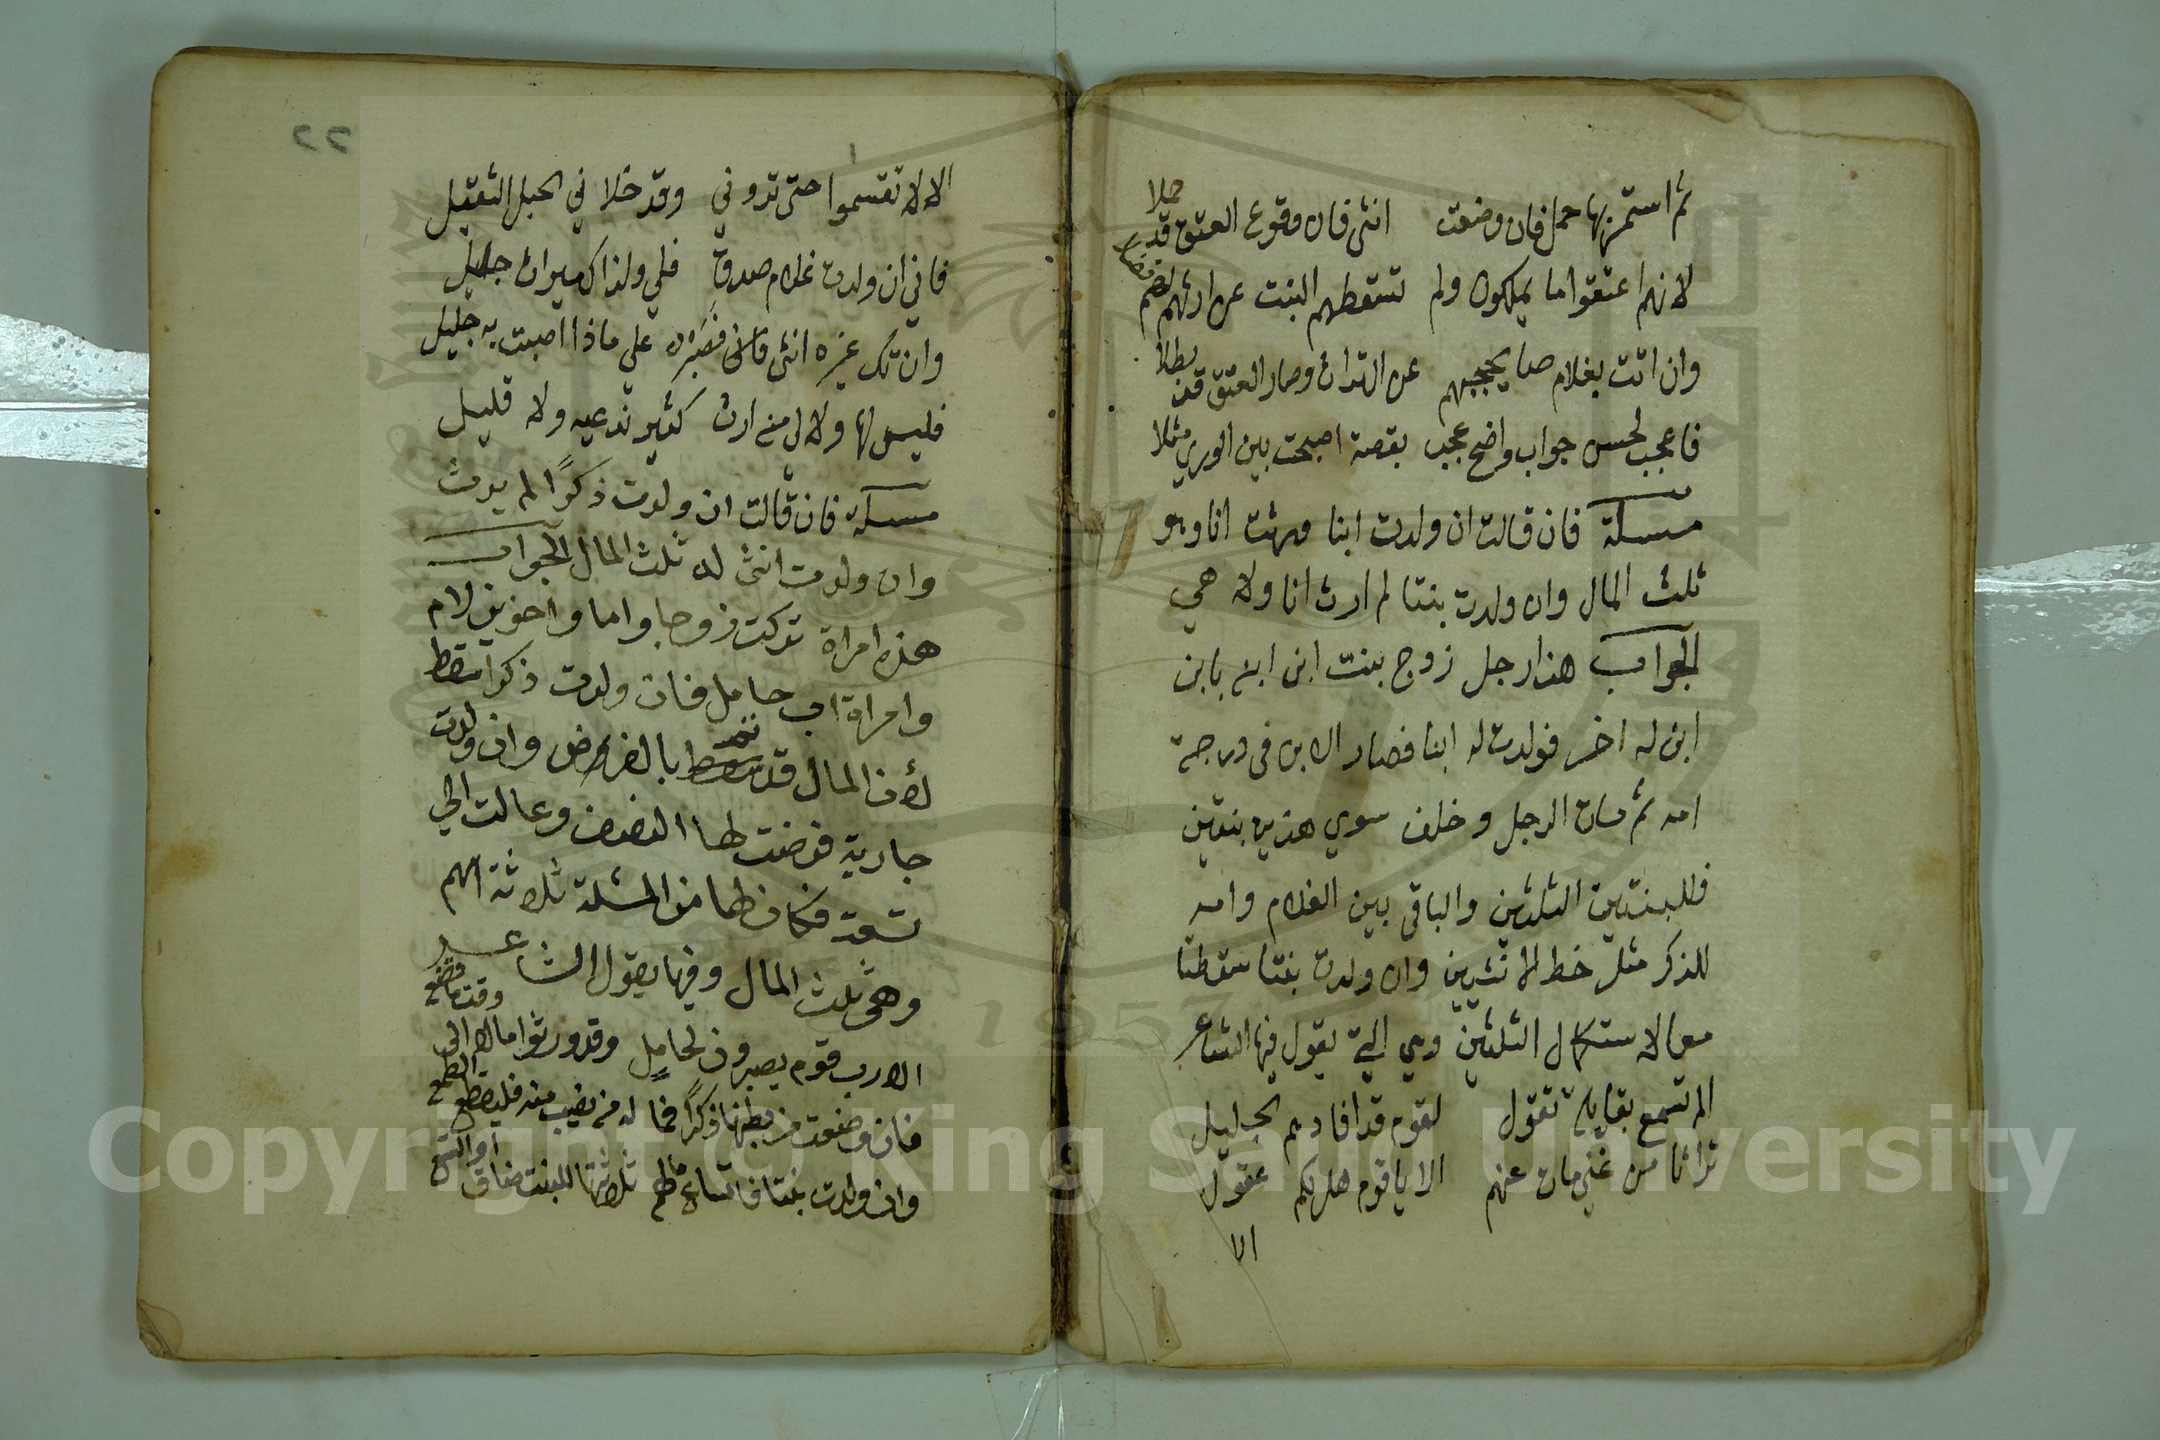 ثم استمر بها حمل فان وضعت انثى فان وقوع العتق قد حلا
لانهم اعتقوا ما يملكون ولم تسقطهم البنت عن ارثهم
وان اتت بغلام صا يحجبهم عن التراث وصار العتق قد بطلا
فاعجب لحسن جواب واضح عجب بقصة اصبحت بين الورى مثلا
مسئلة فان قالت ان ولدت ابنا ورثت انا وهو
ثلث المال وان ولدت بنتا لم ارث انا ولا هي
الجواب هذا رجل زوج بنت ابن ابنه بابن
ابن له اخر فولدت له ابنا فصار الابن في درجة
امه ثم مات الرجل وخلف سوي هذين بنتين
فللبنتين الثلثين والباقي بين الغلام وامه
للذكر مثل خط الانثيين وان ولدت بنتا سقطتا
معا لاستكمال الثلثين وهي التي يقول فيها الشاعر
الم تسمع بقايلة تقول لقوم قد افادهم الجليل
تراثا من غني مات عنهم الا يا قوم هل لكم عقول
الا
٢٢
الا لا تقسموا حتى تروني وقد خلا في الحبل الثقيل
فاني ان ولدت غلام صدق فلي ولذاك ميراث جليل
وان تك غيره انثى فصبرا على ماذا اصبت به جليل
فليس لها ولا لي منه ارث كثير ندعيه ولا قليل
مسئلة فان قالت ان ولدت ذكرًا لم يرث
وان ولدت انثى له ثلث المال الجواب
هذه امراة تركت زوجا واما واخوين لام
وامراة اب حامل فان ولدت ذكرا سقط
لأن المال قد بالفروض وان ولدت
جارية فرضت لها النصف وعالت الي
تسعة فكان لها من المسئلة ثلاثة اسهم
وهي ثلث المال وفيها يقول الشاعر
الا رب قوم يصيرون لحاملٍ وقد ورثوا مالا الى
فان وضعت من بطنها ذكرًا فما له من نصيب منه فليقطع الطمع
وان ولدت بنتا ثلاثتها للبنت
Copyright © King Saud University
1957